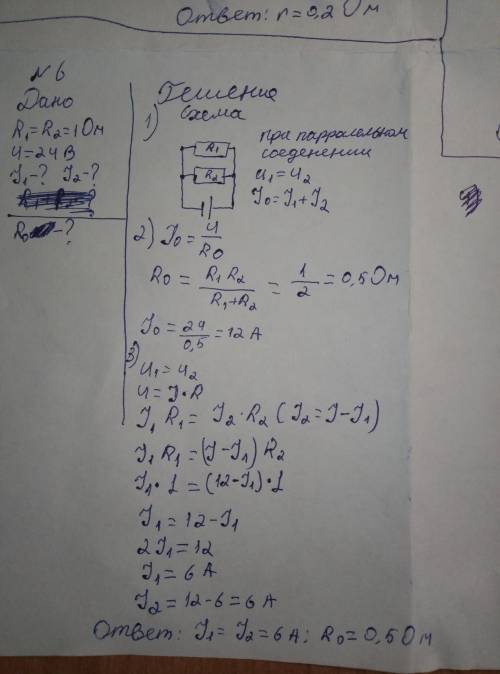 Ответ: r = 0,2 Ом
№ 6
Дано
R₁=R₂=1 Ом
U=24 В
J₁-? J₂-?
R₀ -?
Решение
1) Схема
R₁
R₂
при парралельном
соеденении
U₁=U₂
J₀=J₁+J₂
2) J₀ = U/R₀
R₀ = R₁R₂/(R₁+R₂) = 1/2 = 0,5 Ом
J₀ = 24/0,5 = 12 А
3)
U₁=U₂
U=J·R
J₁ R₁ = J₂·R₂ (J₂=J-J₁)
J₁ R₁ = (J-J₁) R₂
J₁·1 = (12-J₁)·1
J₁ = 12-J₁
2J₁ = 12
J₁ = 6 А
J₂ = 12-6 = 6 А
Ответ: J₁ = J₂ = 6 А; R₀ = 0,5 Ом